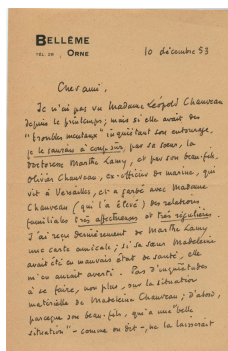 BELLÊME
TEL. 28 ORNE
10 décembre 53
Cher ami,
Je n'ai pas vu Madame Léopold Chauveau
depuis le printemps; mais si elle avait des
"troubles mentaux" inquiétant son entourage,
je le saurais à coup sûr, par sa sœur, la
doctoresse Marthe Lamy, et par son beau-fils,
Olivier Chauveau, ex-officier de marine, qui
vit à Versailles, et a gardé avec Madame
Chauveau (qui l'a élevé) des relations
familiales très affectueuses et très régulières.
J'ai reçu dernièrement de Marthe Lamy
une carte amicale; si sa sœur Madeleine
avait été en mauvais état de santé, elle
m'en aurait averti. Pas d'inquiétudes
à se faire, non plus, sur la situation
matérielle de Madeleine Chauveau; d'abord,
parce que son beau-fils, qui a une "belle
situation" - comme on dit -, ne la laisserait